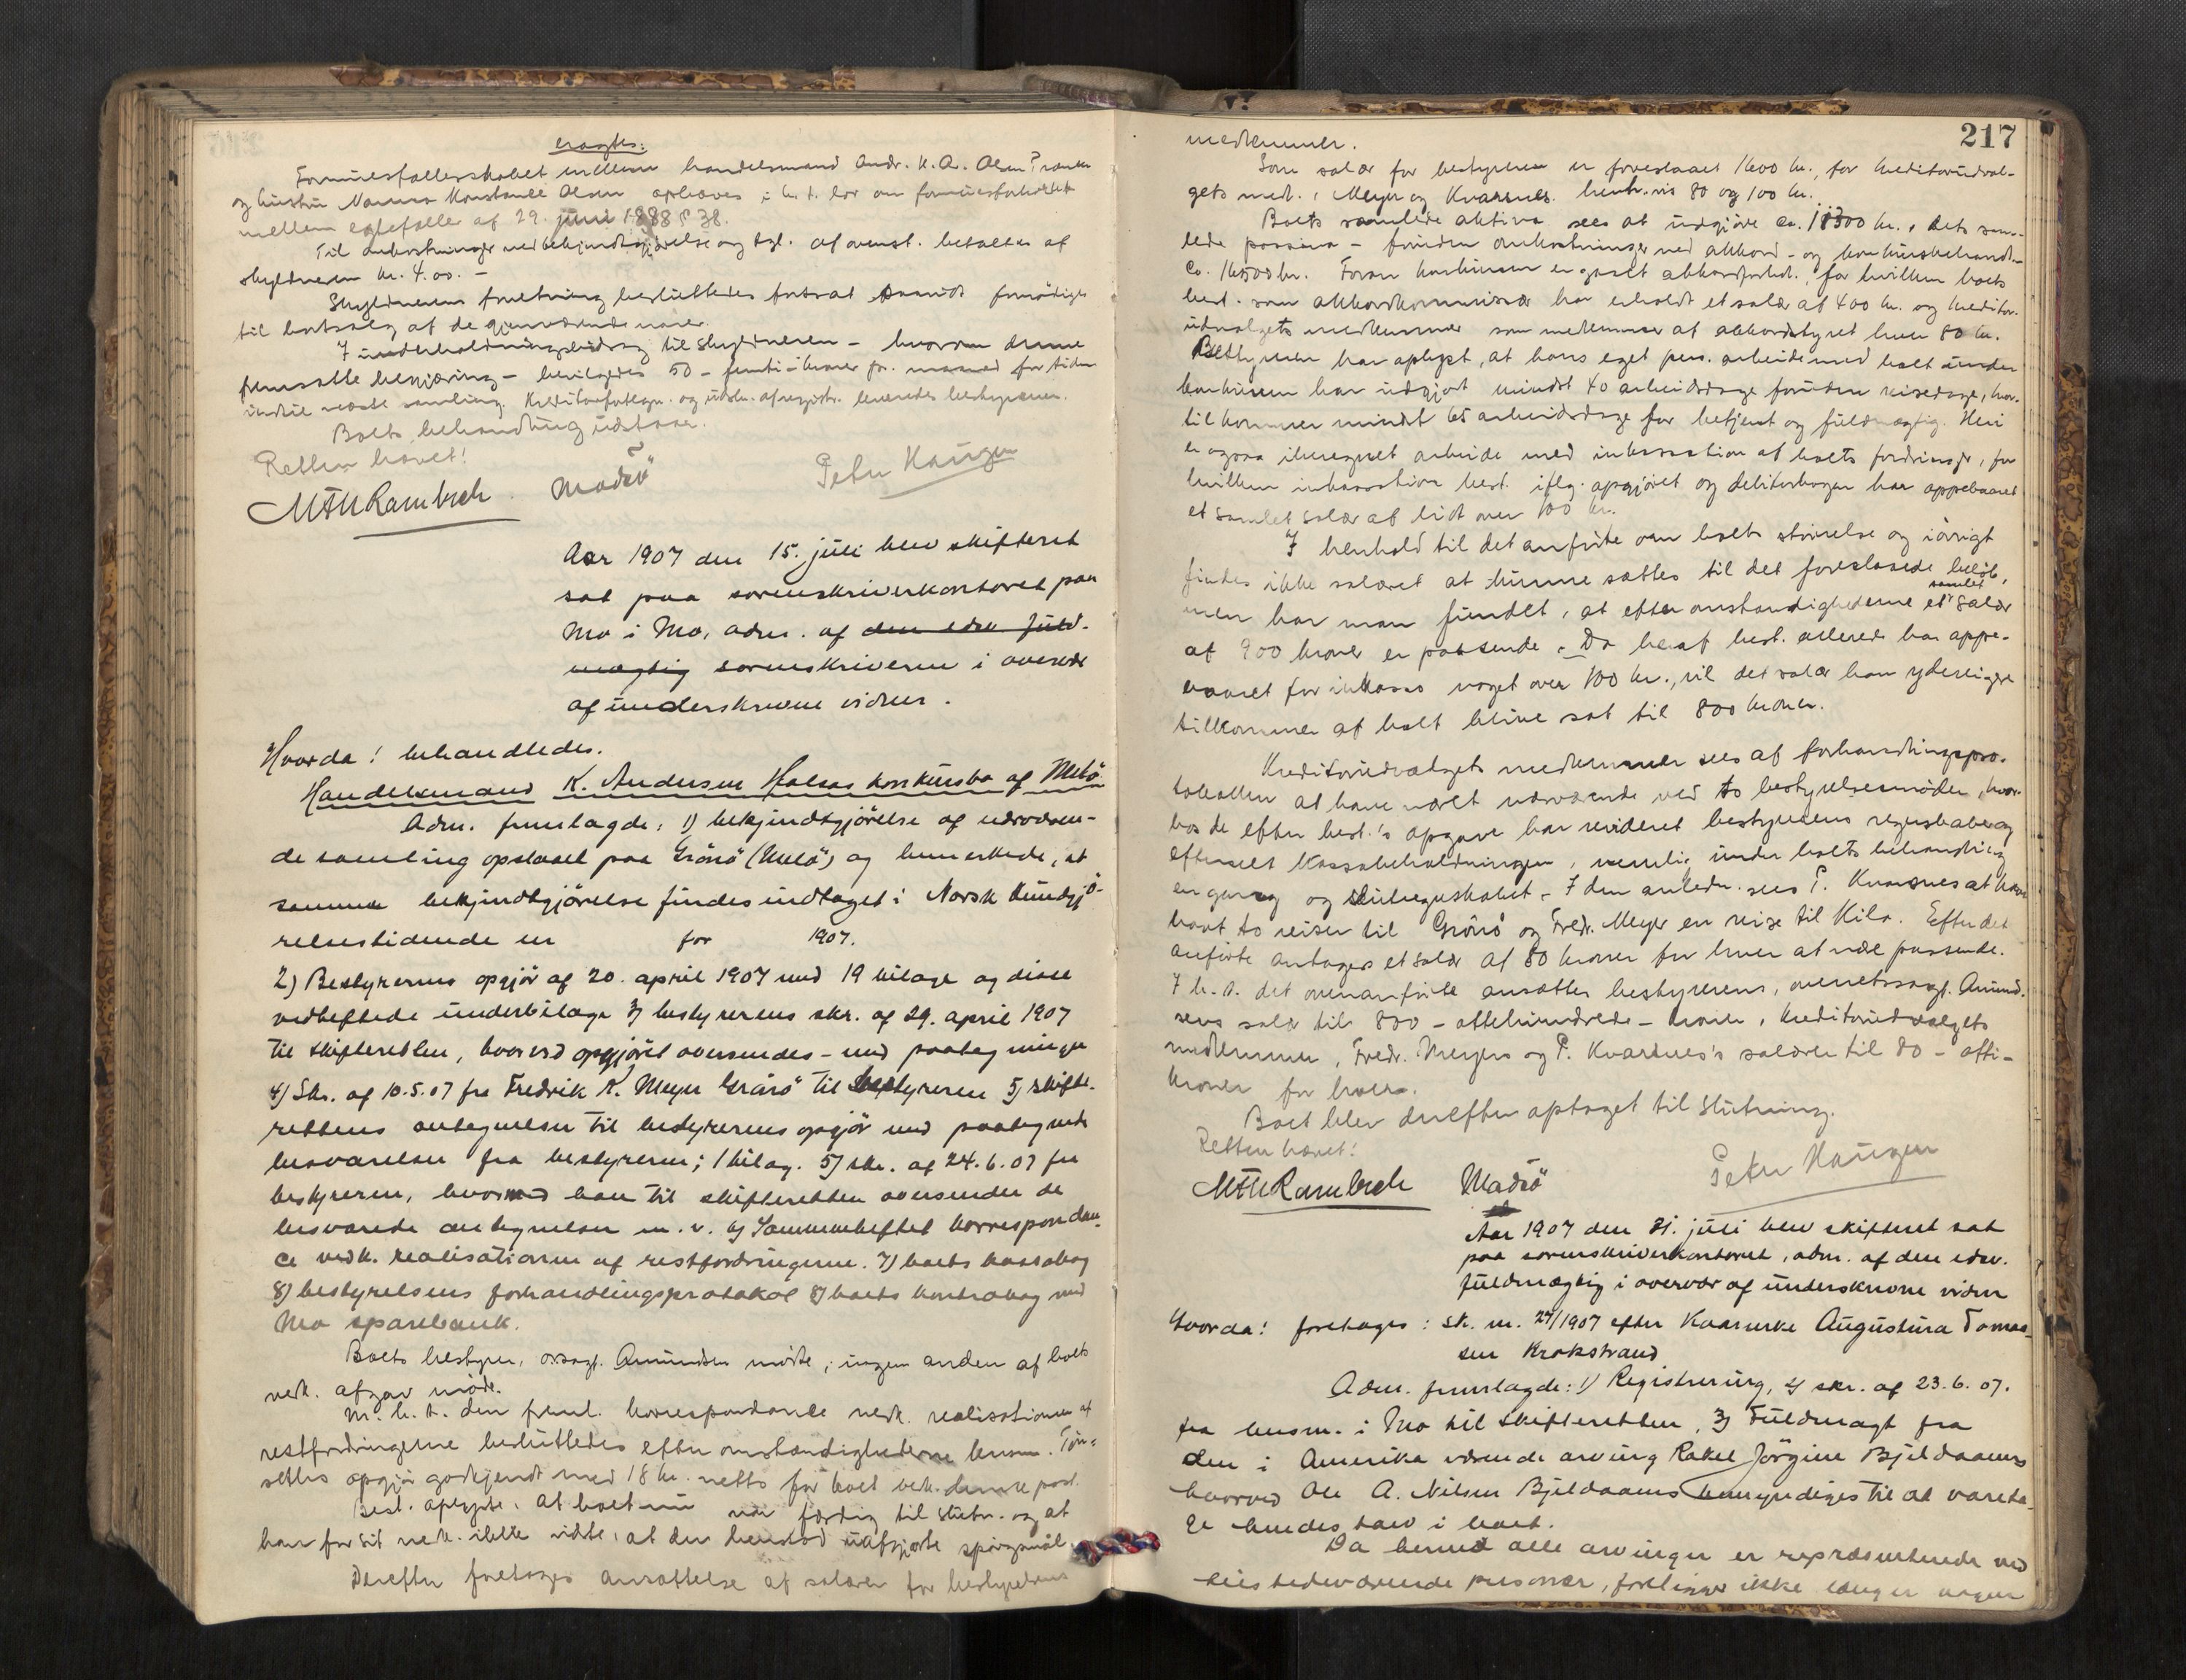 eragtes:
Formuesfællesskabet mellem handelsmand Andr. K. A. Olsen Ranen
og hustru Nanna Konstanse Olsen ophæves i h. t. lov om formuesforholdet
mellem egtefæller af 29. juni 1888 § 38.
Til omkostninger ved bekjendtgjørelse og tgl. af ovenst. betaltes af
skyldneren kr. 4.00. –
Skyldnerens forretning besluttedes fortsat saavidt fornødiges
til bortsalg af de gjenværende varer.
I underholdningsbidrag til skyldneren – hvorom denne
fremsatte begjæring – bevilgedes 50 – femti – kroner pr. maaned for tiden
indtil næste samling. Kreditorfortegn. og udskr. af registr. leveredes bestyreren.
Boets behandling udstaar.
Retten hævet!
M Th Rambech Madsø Peter Haugen
Aar 1907 den 15. juli blev skifteret
sat paa sorenskriverkontoret paa
Mo i Mo, adm. af den edsv. fuld-
mægtig sorenskriveren i overvær
af underskrevne vidner.
Hvorda! behandledes.
Handelsmand K. Andersen Halsas konkursbo af Melø
Adm. fremlagde: 1) bekjendtgjørelse af nærværen-
de samling opslaaet paa Grönö (Melö) og bemerkede, at
samme bekjendtgjørelse findes indtaget i Norsk Kundgjö-
relsestidende nr for 1907.
2) Bestyrerens opgjör af 20. april 1907 med 19 bilage og disse
vedheftede underbilage 3) bestyrerens skr. af 29. april 1907
til skifteretten, hvorved opgjöret oversendes – med paategninger
4) Skr. af 10.5.07 fra Fredrik K. Meyer Grönö til bestyreren 5) skifte-
rettens antegnelser til bestyrerens opgjör med paategnede
besvarelser fra bestyreren; 1 bilag. 5) skr. af 24.6.07 fra
bestyreren, hvormed han til skifteretten oversender de
besvarede antegnelser m. v. 6) Sammenheftet korrespondan-
ce vedk. realisationen af restfordringerne. 7) boets kassabog
8) bestyrelsens forhandlingsprotokol 8) boets kontrabog med
Mo sparebank.
Boets bestyrer, orsagf. Amundsen mödte, ingen anden af boets
vedk. afgav möde.
M. h. t. den freml. korrespondance vedk. realisationen af
restfordringerne besluttedes efter omstændighederne
settes opgjör godkjendt med 18 kr. netto for boet vedk. denne post.
Best. oplyste, at boet nu var færdig til slutn. og at
han for sit vedk. ikke vidste, at der henstod uafgjorte spörgsmål.
Derefter foretoges ansættelse af salærer for bestyrelsens
217
medlemmer.
Som salær for bestyreren er foreslaaet 1600 kr., for kreditorudval-
gets medl., Meyer og Kvarsnes henh.vis 80 og 100 kr.
Boets samlede aktiva sees at udgjöre ca. 18300 kr., dets sam-
lede passiva – foruden omkostninger ved akkord- og konkursbehandl. –
ca. 16500 kr. Foran konkursen er gaaet akkordforhdl., for hvilken boets
best. som akkordkommissær har erholdt et salær af 400 kr. og kreditor-
udvalgets medlemmer som medlemmer af akkordstyret hver 80 kr.
Bestyreren har oplyst, at hans eget pers. arbeide med boet under
konkursen har udgjort mindst 40 arbeidsdage foruden reisedage, hvor-
til kommer mindst 65 arbeidsdage for betjent og fuldmægtig. Heri
er ogsaa iberegnet arbeide med inkassation af boets fordringer, for
hvilken inkassation best. iflg. opgjöret og debitorbogen har oppebaaret
et samlet salær af lidt over 100 kr.
I henhold til det anförte om boets störrelse og iövrigt
findes ikke salæret at kunne sættes til det foreslaaede belöb,
men har man fundet, at efter omstændighederne et samlet salær
af 900 kroner er passende. Da heraf best. allerede har oppe-
baaret for inkasso noget over 100 kr., vil det salær ham yderligere
tilkommer af boet blive sat til 800 kroner.
Kreditorudvalgets medlemmer sees af forhandlingspro-
tokollen at have været nærværende ved to bestyrelsesmöder, hvor-
hos de efter best.'s opgave har revideret bestyrerens regnskaber og
efterseet kassabeholdningen, nemlig under boets behandling
en gang og slutregnskabet. I den anledn. sees P. Kvarsnes at have
havt to reiser til Grönö og Fredr. Meyer en reise til Kila. Efter det
anförte antages et salær af 80 kroner for hver at være passende.
I h. t. det ovenanförte ansættes bestyrerens, overretssagf. Amund-
sens salær til 800 – ottehundrede – kroner, kreditorudvalgets
medlemmer, Fredr. Meyers og P. Kvarsnes's salærer til 80 – otti –
kroner for hver.
Boet blev derefter optaget til slutning.
Retten hævet!
M Th Rambech Madsö Peter Haugen
Aar 1907 den 31. juli blev skifteret sat
paa sorenskriverkontoret, adm. af den edsv.
fuldmægtig i overvær af underskrevne vidner
Hvorda! foretoges: sk. nr. 24/1907 efter Kvarnerke Augustura Tomas-
sen Krokstrand
Adm. fremlagde: 1) Registrering, 2) skr. af 23.6.07.
fra lensm. i Mo til skifteretten, 3) Fuldmagt fra
den i Amerika værende arving Rakel Jörgine Bjeldaanes
hvorved Ole A. Nilsen Bjeldaanes bemyndiges til at vareta-
ge hendes tarv i boet.
Da hermed alle arvinger er repræsenterede ved
tilstedeværende personer, foreligger ikke længer nogen